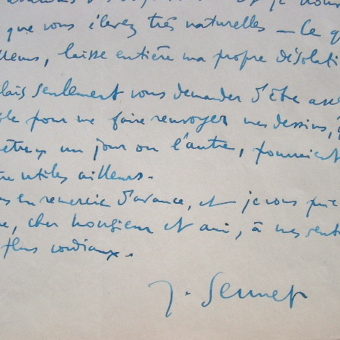 que vous élevez très naturelles — le q
laisse entière ma propre désolati
lais seulement vous demander d'être asse
ble pour me faire renvoyer mes dessins,
un jour ou l'autre, pourraient
re utiles ailleurs.
us en remercie d'avance, et je vous prie
e, cher monsieur et ami, à mes sent
plus cordiaux.
J. Sennep